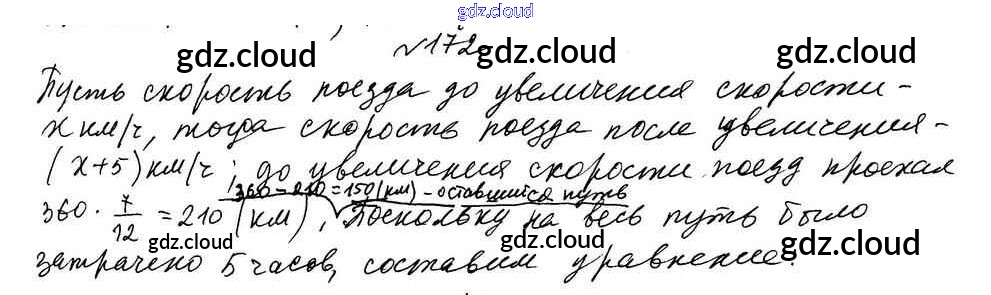 gdz.cloud
№172
gdz.cloud gdz.cloud
Пусть скорость поезда до увеличения скорости -
x км/ч, тогда скорость поезда после увеличения -
gdz.cloud gdz.cloud
(x+5) км/ч; до увеличения скорости поезд проехал
360-210=150(км) - оставшийся путь
360 · 7/12 = 210 (км), Поскольку на весь путь было
gdz.cloud gdz.cloud
затрачено 5 часов, составим уравнение:
gdz.cloud gdz.cloud